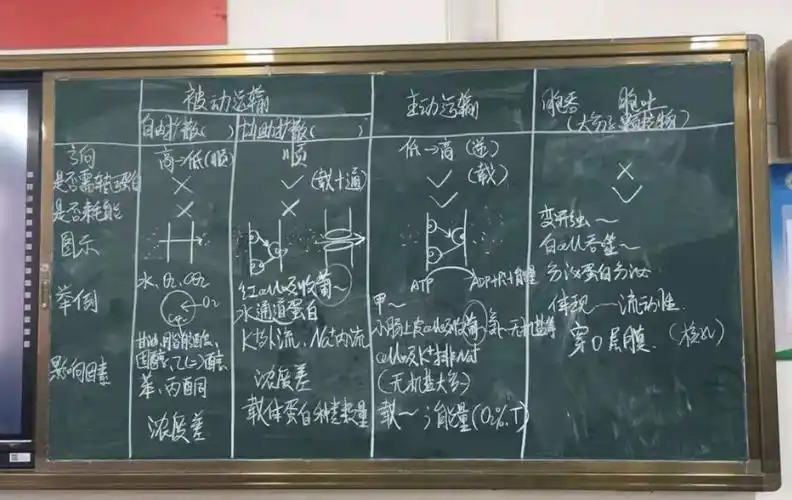 被动运输 主动运输 胞吞 胞吐
自由扩散( ) 协助扩散( ) (大分子、颗粒物)
方向 高→低(顺) 顺 低→高(逆)
是否需转运蛋白 × ✓(载+通) ✓(载) ×
是否耗能 × × ✓ ✓
图示
ATP ADP+Pi+能量
变形虫~
白细胞吞噬~
分泌蛋白分泌
体现—流动性
穿0层膜.(核孔)
举例 水、O₂、CO₂
O₂
甘油、脂肪酸、
固醇、乙(二)醇、
苯、丙酮
红细胞吸收葡~
水通道蛋白
K⁺外流、Na⁺内流
甲~
小肠上皮细胞吸收葡、氨、无机盐等
细胞吸K⁺排Na⁺
(无机盐大多)
影响因素
浓度差
浓度差
载体蛋白种类数量
载~;能量(O₂%.T)